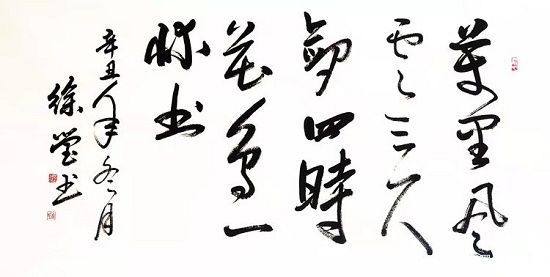 萬里風
雲三尺
劍四時
花鳥一
牀書
辛丑年冬月
徐瑩書